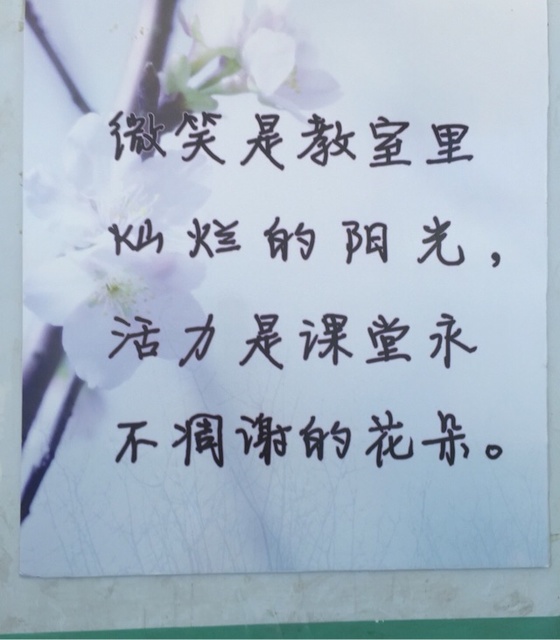 微笑是教室里
灿烂的阳光，
活力是课堂永
不凋谢的花朵。